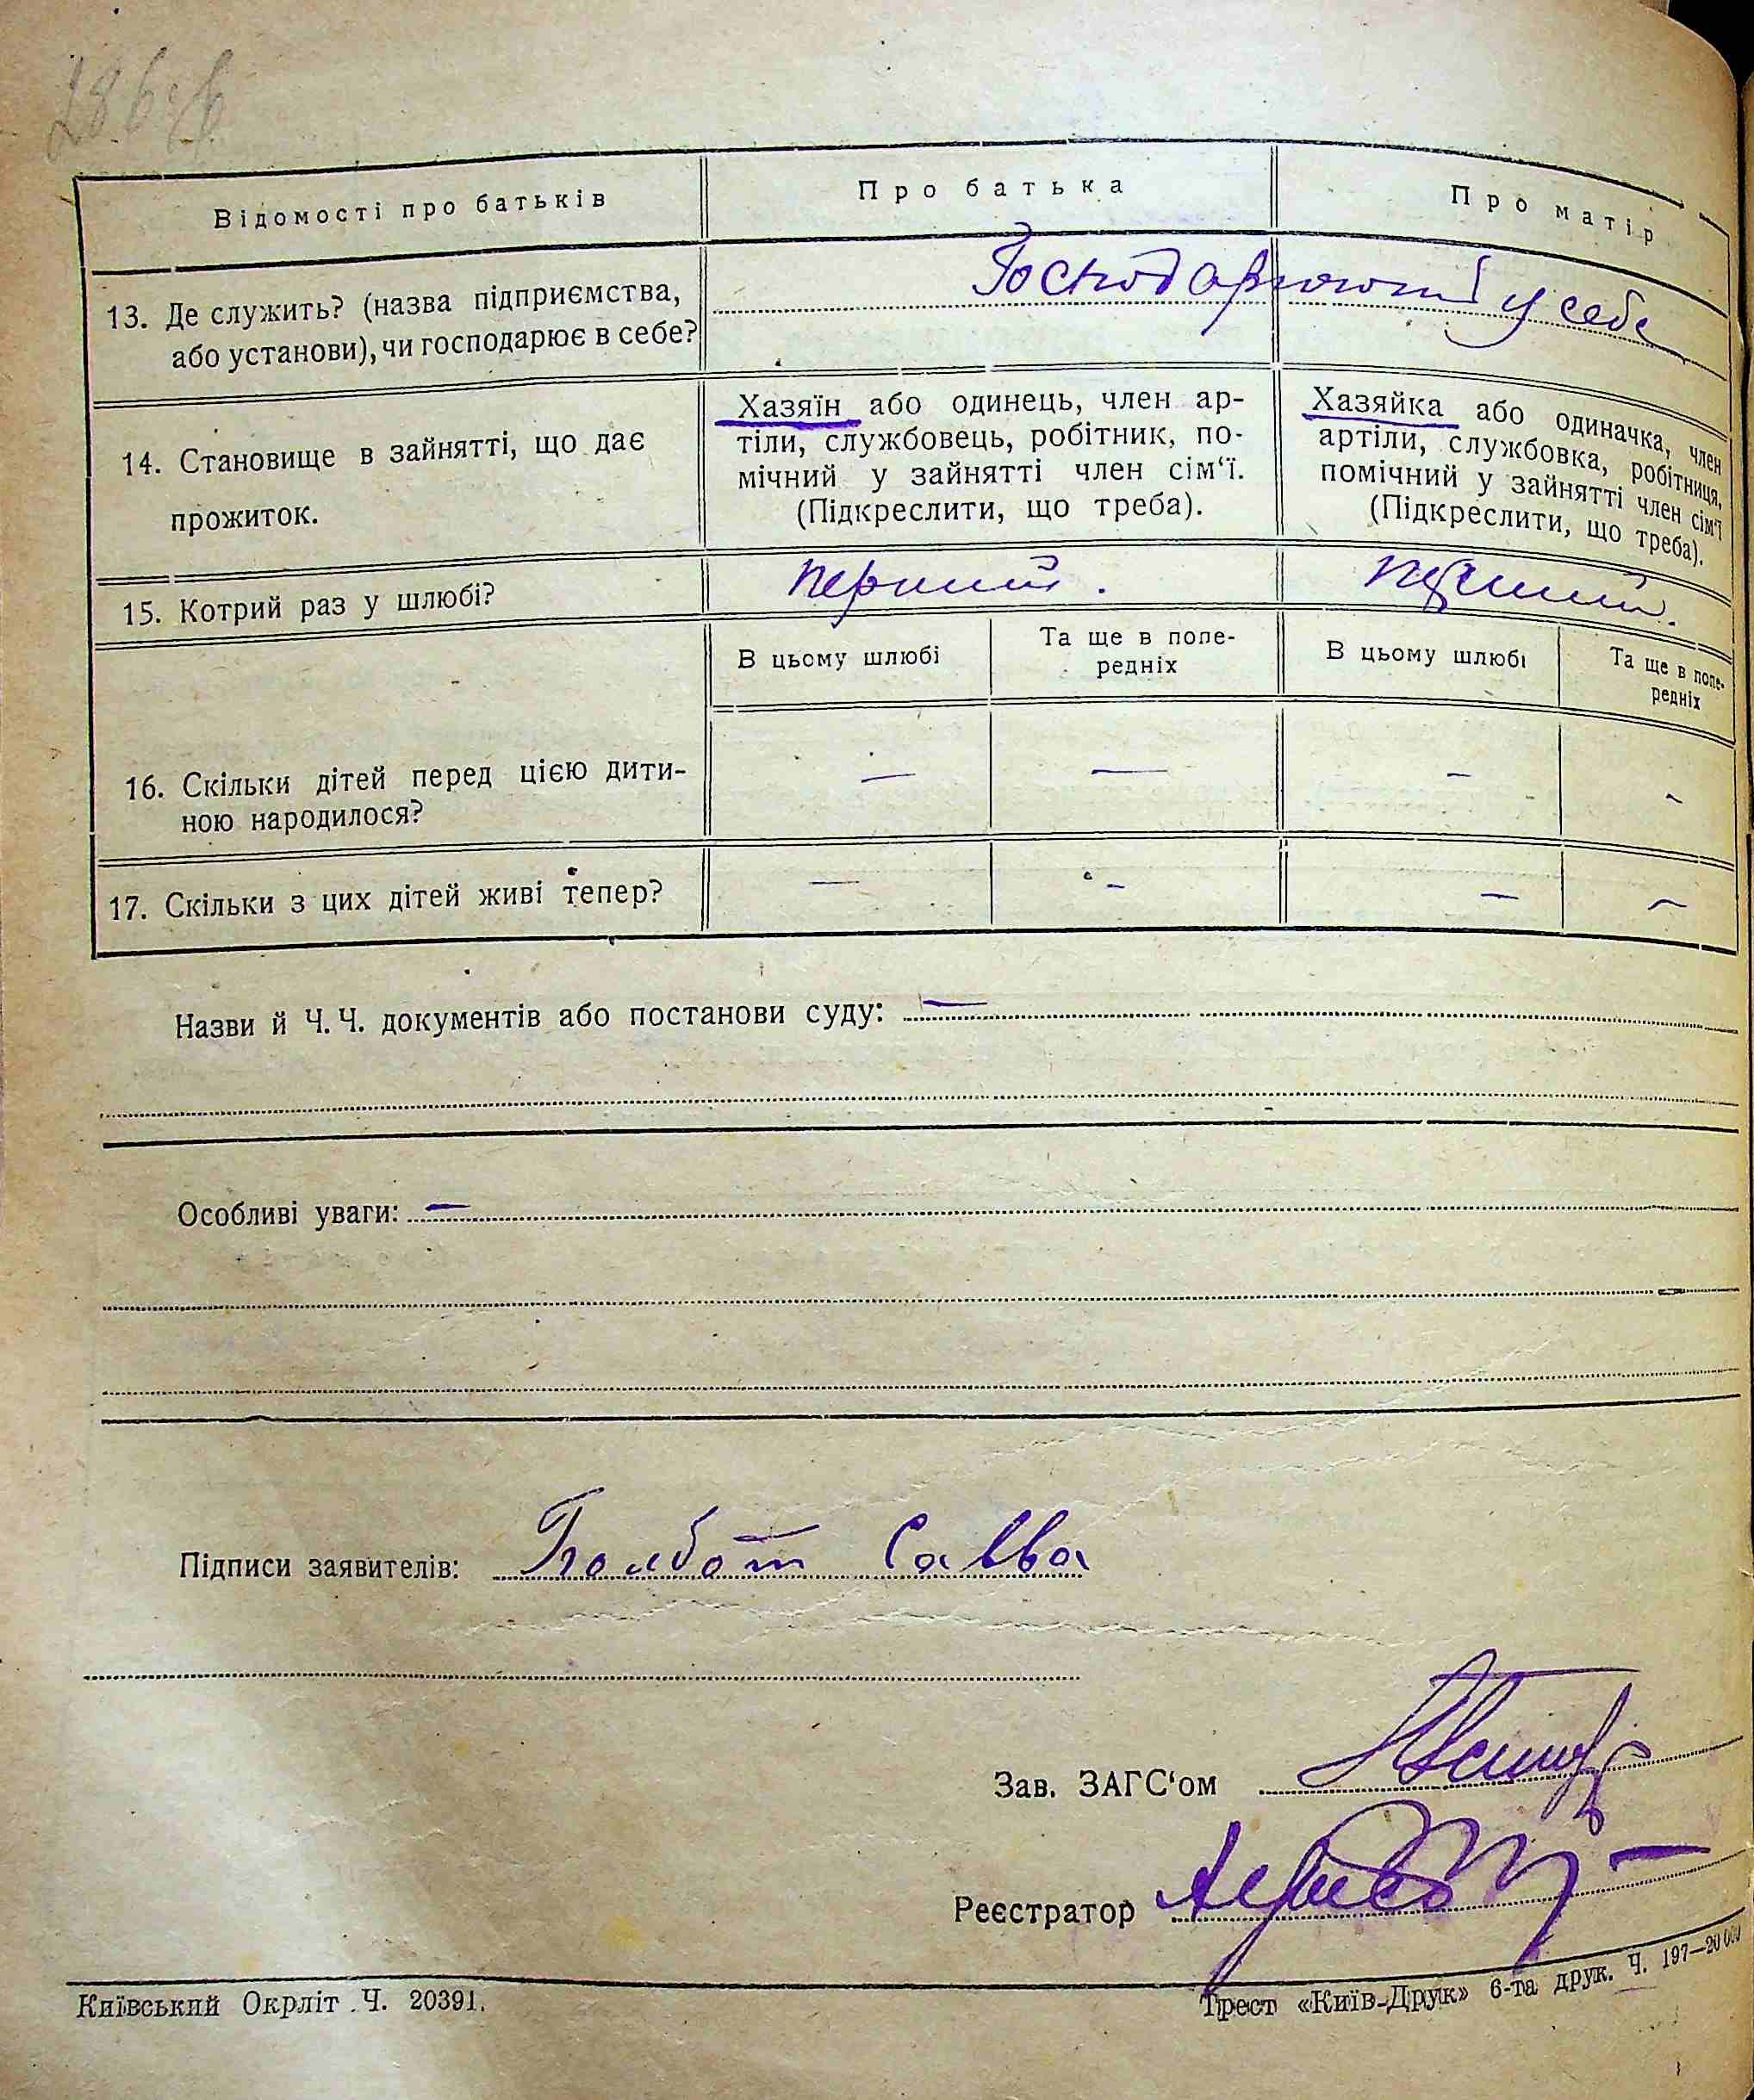 286 зв
Відомості про батьків
Про батька
Про матір
13. Де служить? (назва підприємства,
або установи), чи господарює в себе?
Господарюють у себе
14. Становище в зайнятті, що дає
прожиток.
Хазяїн або одинець, член ар-
тіли, службовець, робітник, по-
мічний у зайнятті член сім‘ї.
(Підкреслити, що треба).
Хазяйка або одиначка, член
артіли, службовка, робітниця,
помічний у зайнятті член сім‘ї
(Підкреслити, що треба).
15. Котрий раз у шлюбі?
перший.
перший.
В цьому шлюбі
Та ще в попе-
редніх
В цьому шлюбі
Та ще в попе-
редніх
16. Скільки дітей перед цією дити-
ною народилося?
— — — —
17. Скільки з цих дітей живі тепер?
— — — —
Назви й Ч. Ч. документів або постанови суду: —
Особливі уваги: —
Підписи заявителів: Савва
Зав. ЗАГС‘ом
Реєстратор
Київський Окрліт Ч. 20391.
Трест «Київ-Друк» 6-та друк. Ч. 197—20 000